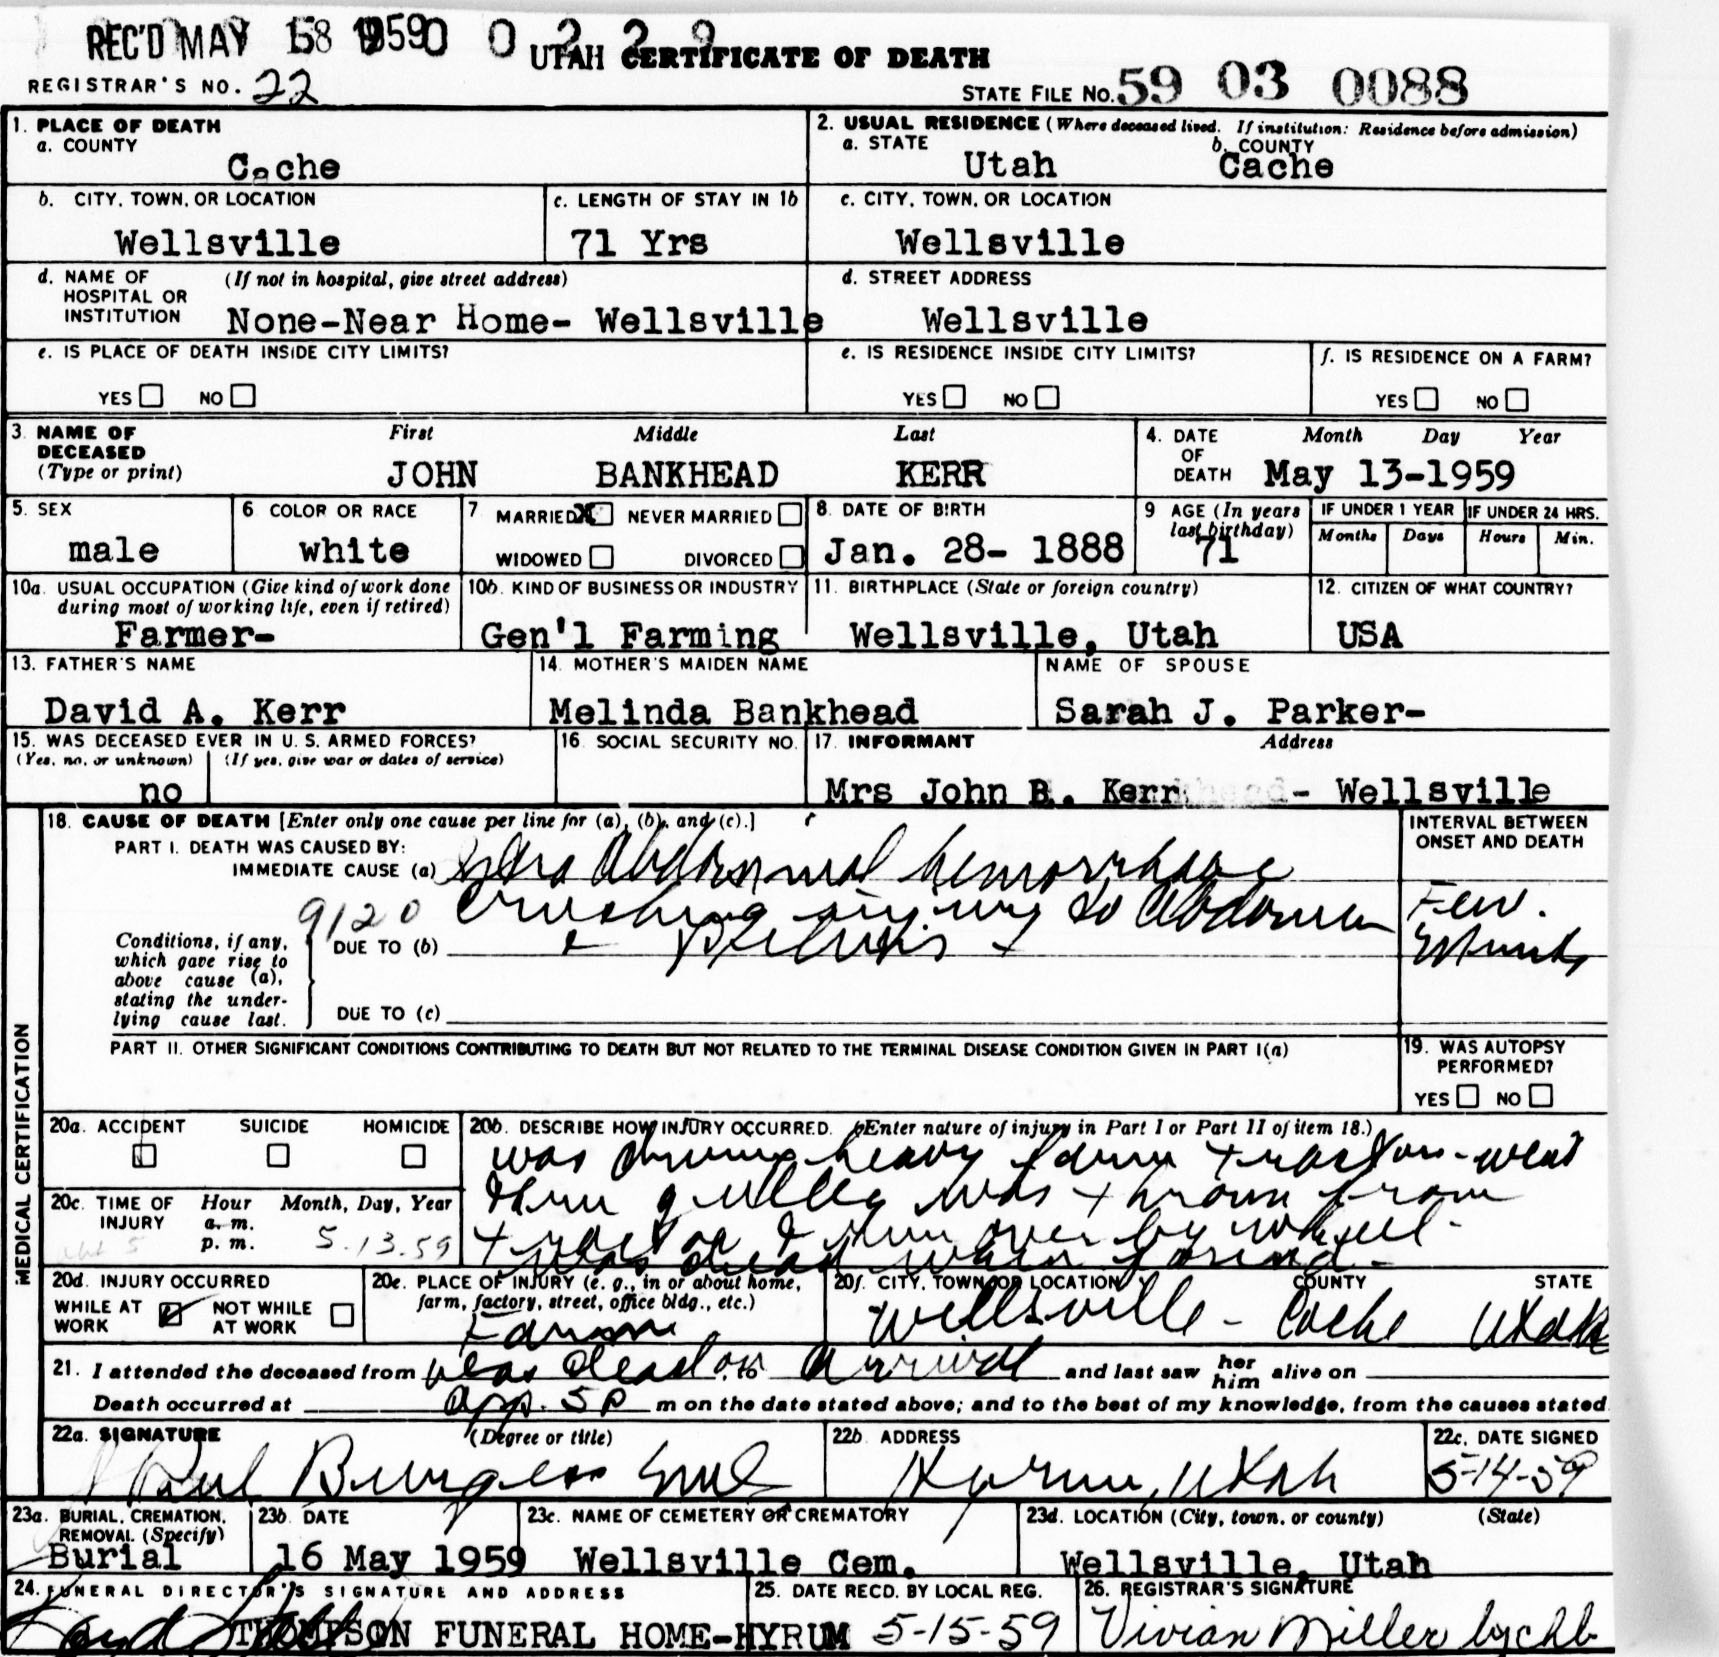 REC'D MAY 18 1959 0 0 2 2 9
UTAH CERTIFICATE OF DEATH
REGISTRAR'S NO. 22
STATE FILE NO. 59 03 0088
1. PLACE OF DEATH
a. COUNTY
Cache
2. USUAL RESIDENCE (Where deceased lived. If institution: Residence before admission)
a. STATE b. COUNTY
Utah Cache
b. CITY, TOWN, OR LOCATION
Wellsville
c. LENGTH OF STAY IN 1b
71 Yrs
c. CITY, TOWN, OR LOCATION
Wellsville
d. NAME OF (If not in hospital, give street address)
HOSPITAL OR
INSTITUTION None-Near Home- Wellsville
d. STREET ADDRESS
Wellsville
e. IS PLACE OF DEATH INSIDE CITY LIMITS?
YES NO
e. IS RESIDENCE INSIDE CITY LIMITS?
YES NO
f. IS RESIDENCE ON A FARM?
YES NO
3. NAME OF First Middle Last
DECEASED
(Type or print) JOHN BANKHEAD KERR
4. DATE Month Day Year
OF
DEATH May 13-1959
5. SEX
male
6 COLOR OR RACE
white
7 MARRIED X NEVER MARRIED
WIDOWED DIVORCED
8. DATE OF BIRTH
Jan. 28- 1888
9 AGE (In years
last birthday)
71
IF UNDER 1 YEAR IF UNDER 24 HRS.
Months Days Hours Min.
10a. USUAL OCCUPATION (Give kind of work done
during most of working life, even if retired)
Farmer-
10b. KIND OF BUSINESS OR INDUSTRY
Gen'l Farming
11. BIRTHPLACE (State or foreign country)
Wellsville, Utah
12. CITIZEN OF WHAT COUNTRY?
USA
13. FATHER'S NAME
David A. Kerr
14. MOTHER'S MAIDEN NAME
Melinda Bankhead
NAME OF SPOUSE
Sarah J. Parker-
15. WAS DECEASED EVER IN U. S. ARMED FORCES?
(Yes, no, or unknown) (If yes, give war or dates of service)
no
16. SOCIAL SECURITY NO.
17. INFORMANT Address
Mrs John B. Kerr - Wellsville
MEDICAL CERTIFICATION
18. CAUSE OF DEATH [Enter only one cause per line for (a), (b), and (c).]
PART I. DEATH WAS CAUSED BY:
IMMEDIATE CAUSE (a) Intra Abdominal hemorrhage
9120 crushing injury to Abdomen
DUE TO (b) & Pelvis
Conditions, if any,
which gave rise to
above cause (a),
stating the under-
lying cause last.
DUE TO (c)
INTERVAL BETWEEN
ONSET AND DEATH
Few.
Minutes
PART II. OTHER SIGNIFICANT CONDITIONS CONTRIBUTING TO DEATH BUT NOT RELATED TO THE TERMINAL DISEASE CONDITION GIVEN IN PART I(a)
19. WAS AUTOPSY
PERFORMED?
YES NO
20a. ACCIDENT SUICIDE HOMICIDE
20b. DESCRIBE HOW INJURY OCCURRED. (Enter nature of injury in Part I or Part II of item 18.)
was driving heavy farm tractor - went
thru gulley was thrown from
tractor & run over by wheel -
was dead when found -
20c. TIME OF Hour Month, Day, Year
INJURY a. m.
p. m. 5.13.59
abt 5
20d. INJURY OCCURRED
WHILE AT NOT WHILE
WORK AT WORK
20e. PLACE OF INJURY (e. g., in or about home,
farm, factory, street, office bldg., etc.)
Farm
20f. CITY, TOWN, OR LOCATION COUNTY STATE
Wellsville - Cache Utah
21. I attended the deceased from was dead on to Arrival and last saw her him alive on
Death occurred at app. 5 P m on the date stated above; and to the best of my knowledge, from the causes stated
22a. SIGNATURE (Degree or title)
Paul Burgess MD
22b. ADDRESS
Hyrum, Utah
22c. DATE SIGNED
5-14-59
23a. BURIAL, CREMATION,
REMOVAL (Specify)
Burial
23b. DATE
16 May 1959
23c. NAME OF CEMETERY OR CREMATORY
Wellsville Cem.
23d. LOCATION (City, town, or county) (State)
Wellsville, Utah
24. FUNERAL DIRECTOR'S SIGNATURE AND ADDRESS
THOMPSON FUNERAL HOME-HYRUM
25. DATE RECD. BY LOCAL REG.
5-15-59
26. REGISTRAR'S SIGNATURE
Vivian Miller by chb